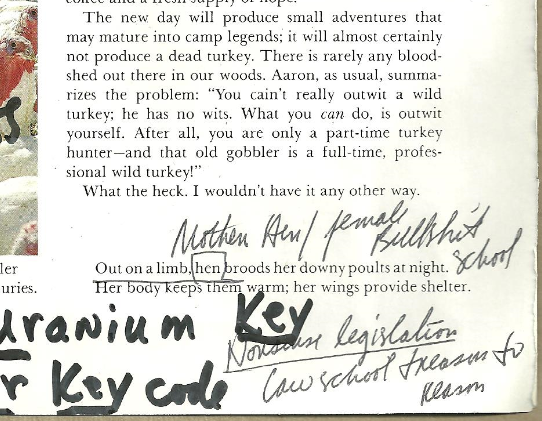 coffee and a fresh supply of hope.
The new day will produce small adventures that
may mature into camp legends; it will almost certainly
not produce a dead turkey. There is rarely any blood-
shed out there in our woods. Aaron, as usual, summa-
rizes the problem: “You cain't really outwit a wild
turkey; he has no wits. What you can do, is outwit
yourself. After all, you are only a part-time turkey
hunter—and that old gobbler is a full-time, profes-
sional wild turkey!”
What the heck. I wouldn't have it any other way.
Mother Hen/ female
Bullshit
school
ler
uries.
Out on a limb, hen broods her downy poults at night.
Her body keeps them warm; her wings provide shelter.
uranium Key
r Key code
Nonsense legislation
Law school treason to
reason